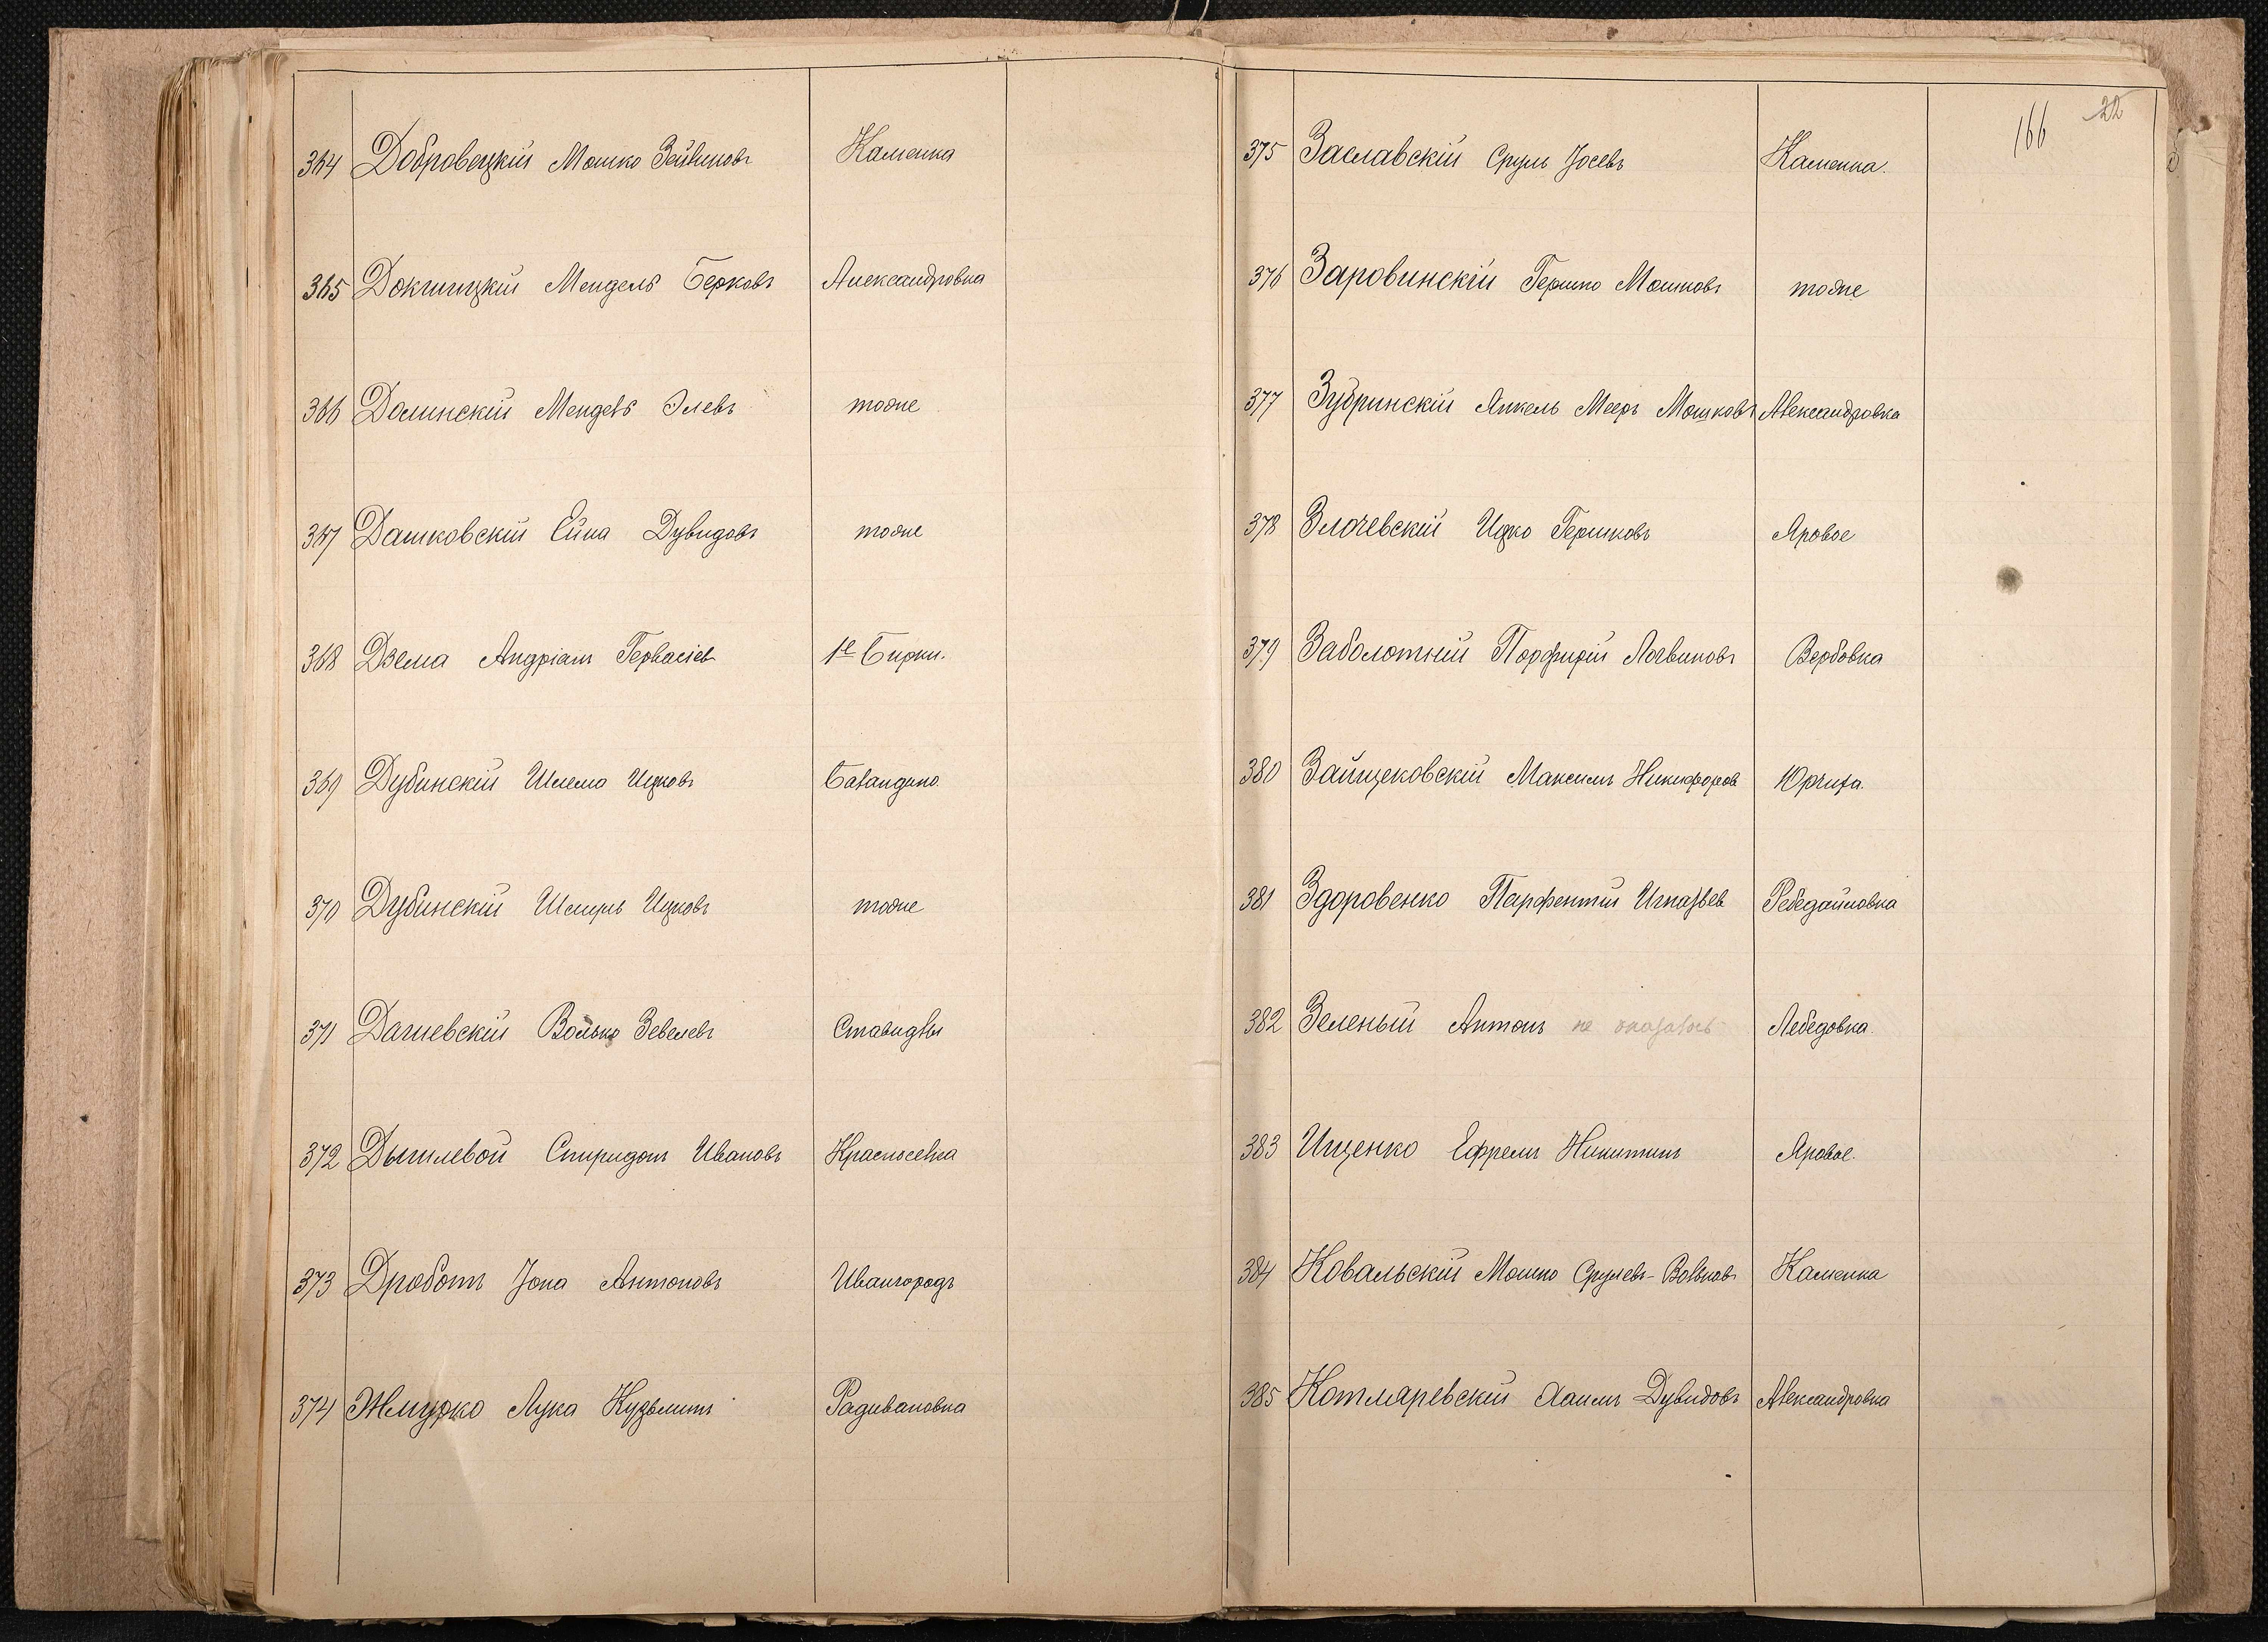 364 Добровецкій Мошко Зейликовъ Каменка
365 Докшицкій Мендель Берковъ Александровка
366 Долинскій Мендель Элевъ тоже
367 Дашковскій Ейна Дувидовъ тоже
368 Дзема Андріанъ Гервасіев 1е Бирки.
369 Дубинскій Шлема Ицковъ Баландино.
370 Дубинскій Шмуль Ицковъ тоже
371 Дагиевскій Волько Зевелевъ Ставидлы
372 Дышлевой Спиридонъ Ивановъ Красноселка
373 Дроботъ Іона Антоновъ Ивангородъ
374 Жмурко Лука Кузьминъ Радивановка
166 22
375 Заславскій Сруль Іосевъ Каменка.
376 Заровинскій Гершко Мошковъ тоже
377 Зубринскій Янкель Мееръ Мошковъ Александровка
378 Злочевскій Ицко Гершковъ Яровое
379 Заболотній Порфирій Логвиновъ Вербовка
380 Зайцековскій Максимъ Никифоров Юрчиха.
381 Здоровенко Парфентій Игнатьев Ребедайловка
382 Зеленый Антонъ не оказалось Лебедовка.
383 Ищенко Ефремъ Никитинъ Яровое.
384 Ковальскій Мошко Срулевъ-Вольковъ Каменка
385 Котляревскій Хаимъ Дувидовъ Александровка